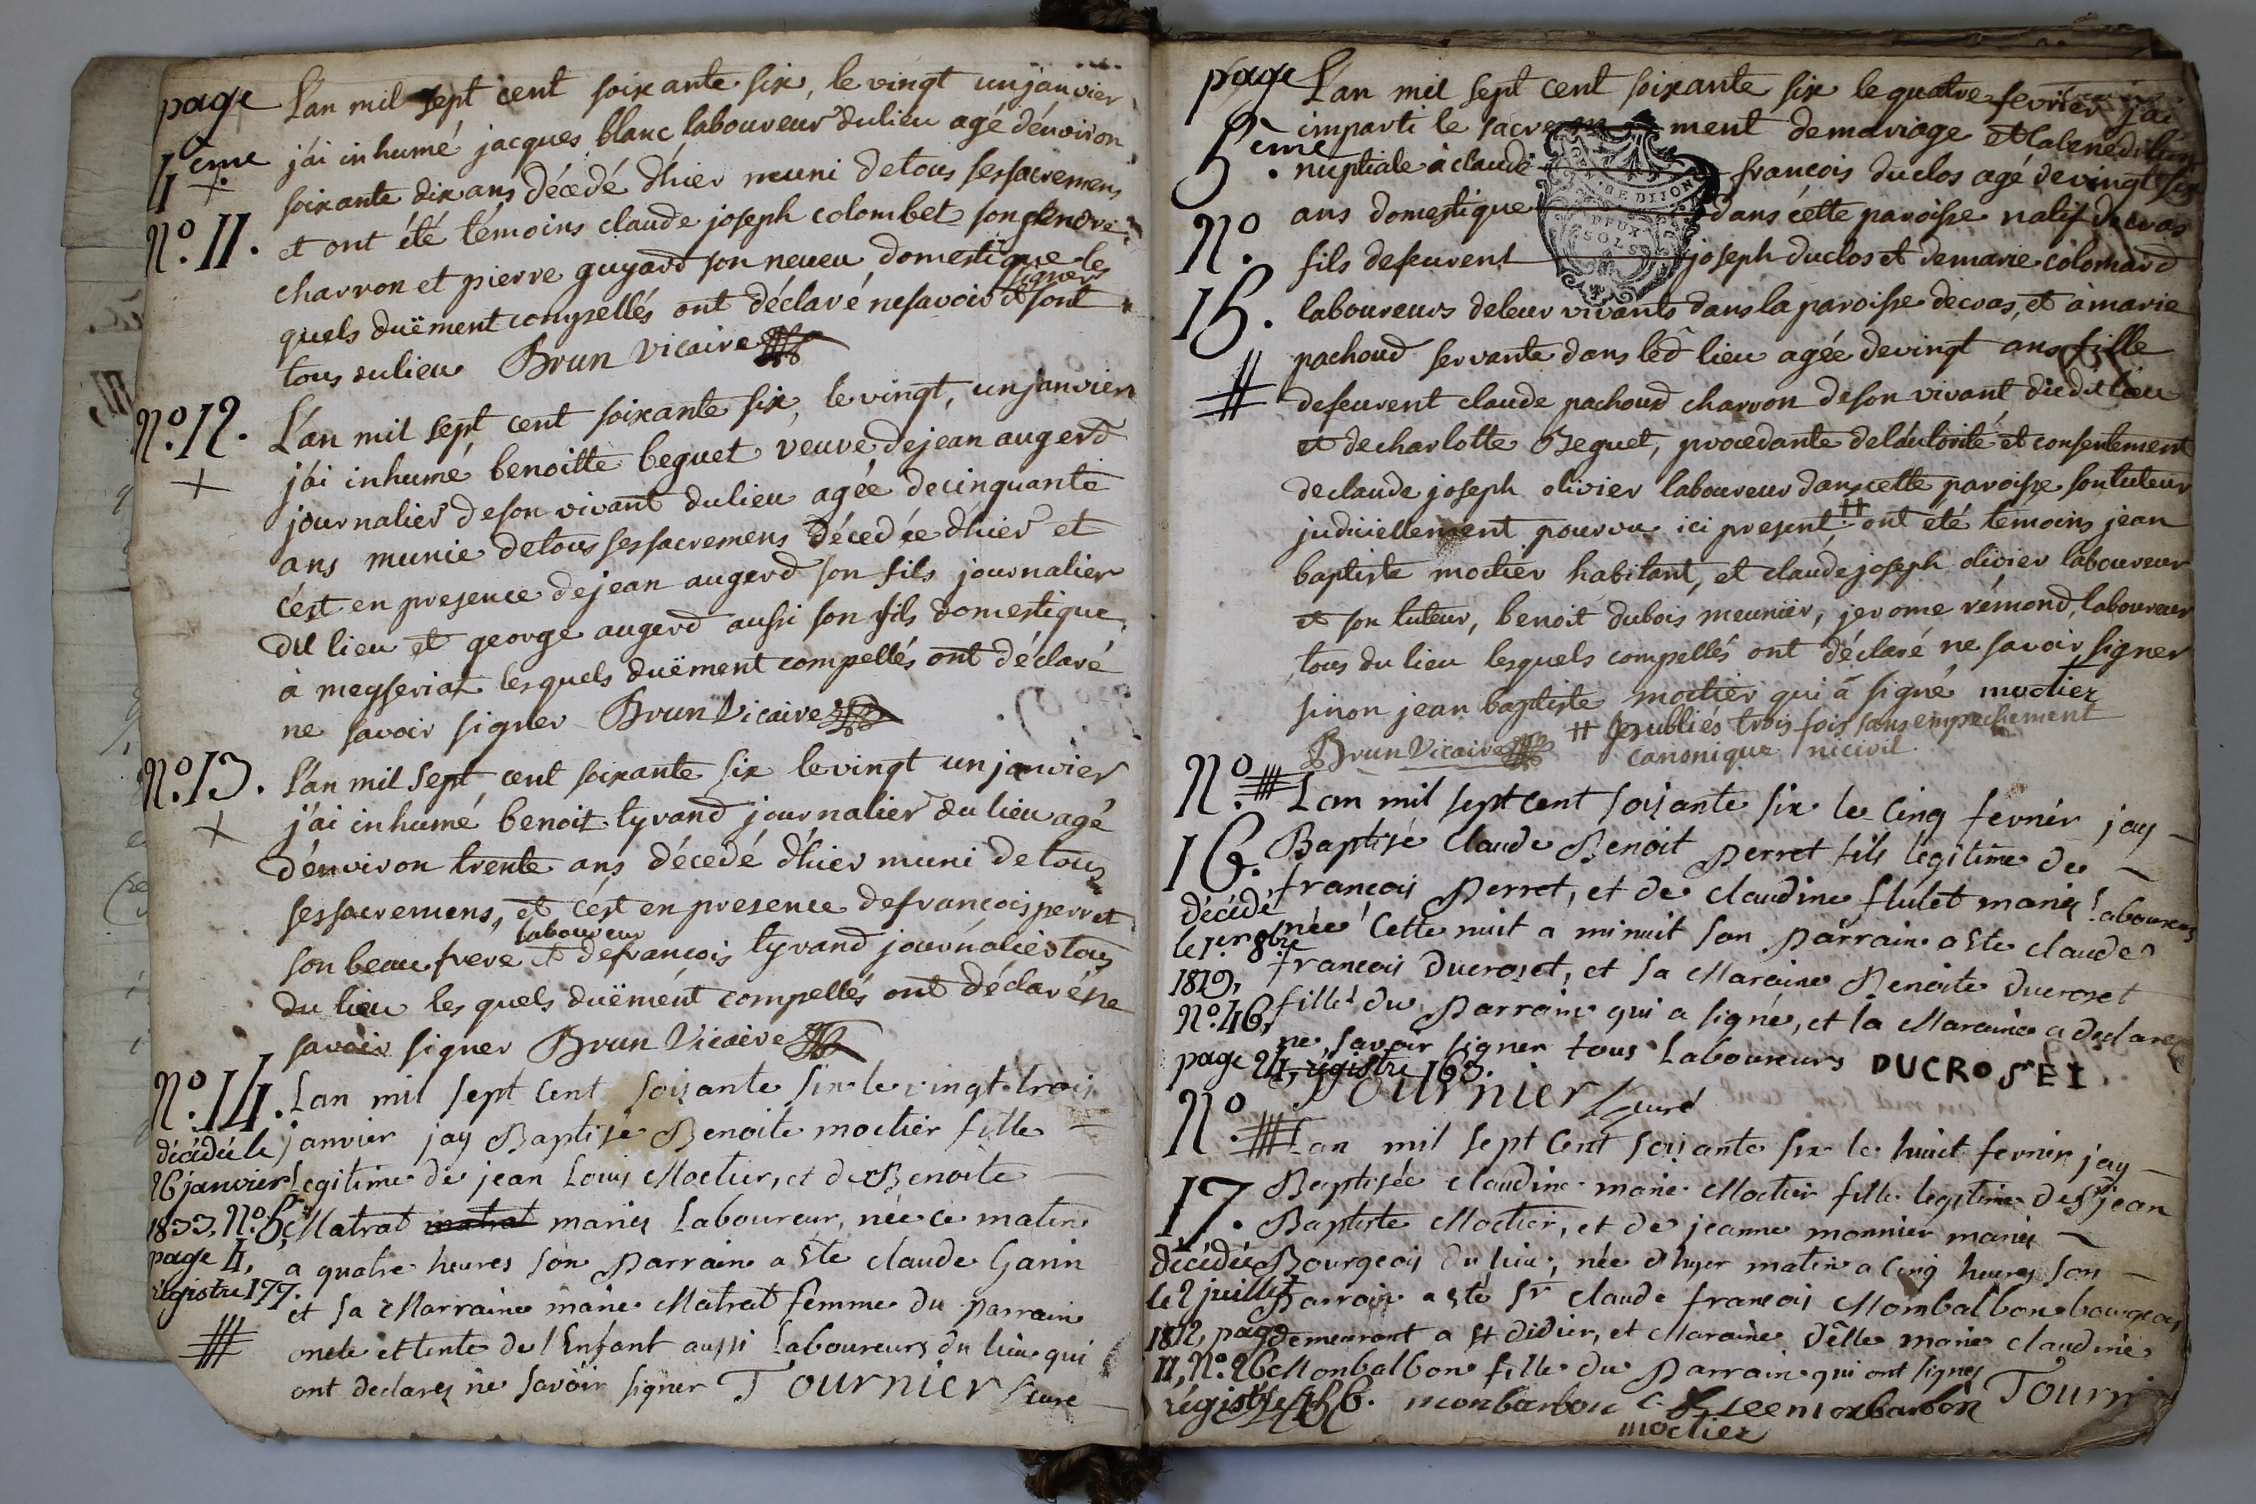 page
4ème
L'an mil sept cent soixante six, le vingt un janvier
j'ai inhumé jacques blanc laboureur du lieu agé d'énviron
soixante dix ans décedé d'hier muni de tous ses sacremens
N°. 11.
et ont été témoins claude joseph colombet son gendre
charron et pierre guyard son neveu domestique les
quels duëment compellés ont déclaré ne savoir signer et sont
tous du lieu Brun vicaire
N°. 12.
L'an mil sept cent soixante six, le vingt, un janvier
j'ai inhumé benoitte beguet veuve de jean augerd
journalier de son vivant du lieu agée de cinquante
ans munie de tous ses sacremens décedée d'hier et
c'ést en presence de jean augerd son fils journalier
du lieu et george augerd aussi son fils domestique
à meyseriat lesquels duëment compellés ont déclaré
ne savoir signer Brun Vicaire
N°. 13.
L'an mil sept cent soixante six le vingt un janvier
j'ai inhumé benoit tyrand journalier du lieu agé
d'énviron trente ans décedé d'hier muni de tous
ses sacremens, et c'ést en presence de francois perret
son beau frere laboureur et de francois tyrand journalier tous
du lieu les quels duëmént compellés ont déclaré ne
savoir signer Brun Vicaire
N°. 14.
Lan mil sept Cent soixante six le vingt trois
janvier jay Baptisé Benoite moctier fille
Legitime de jean Louis Moctier, et de Benoite
Matrat matrat mariés Laboureur, née ce matin
a quatre heures son Parrain a Ete claude Garin
et sa Marraine marie Matrat femme du parrain
oncle et tente de l'Enfant aussi Laboureurs du lieu qui
ont declarez ne savoir signer Tournier Curé
décédée le
26 janvier
1833, N°. 5,
page 4,
régistre 177.
page
5ème.
L'an mil sept cent soixante six le quatre fevrier j'ai
imparti le sacrement de mariage et la benediction
nuptiale à claude françois duclos agé de vingt six
N°.
15.
ans domestique dans cette paroisse natif de cras
fils de feurent joseph duclos et de marie colomard
GEN. DE DIJON
DEUX
SOLS
laboureurs de leur vivants dans la paroisse de cras, et à marie
pachoud servante dans led lieu agée de vingt ans fille
de feurent claude pachoud charron de son vivant dudit lieu
et de charlotte Beguet, procedante de l'autorité et consentement
de claude joseph olivier laboureur dans cette paroisse son tuteur
judiciellement pourvu ici present ++ ont été temoins jean
baptiste moctier habitant, et claude joseph olivier laboureur
et son tuteur, benoit dubois meunier, jerome rémond, laboureur
tous du lieu lesquels compellés ont déclaré ne savoir signer
sinon jean baptiste moctier qui à signé moctier
++ publiés trois fois sans empechement
Brun Vicaire canonique ni civil
N°.
16.
Lan mil sept cent soixante six le Cinq fevrier jay
Baptisé Claude Benoit Perret fils légitime de
françois Perret, et de Claudine flutet mariés Laboureurs
née Cette nuit a minuit son Parrain a Ete claude
françois Ducroset, et sa Maraine Benoite Ducroset
fille du Parrain qui a signé, et la Maraine a declaré
ne savoir signer tous Laboureurs DUCROSET
Tournier Curé
décédé
le 1er. 8bre
1819,
N°. 46,
page 24, régistre 163.
N°.
17.
Lan mil sept Cent soixante six le huit fevrier jay
Baptisée claudine marie Moctier fille legitime de sr jean
Baptiste Moctier, et de jeanne monnier mariés
Bourgeois du lieu, née d'hyer matin a Cinq heures son
Parrain a été Sr claude françois Mombalbon bourgeois
demeurant a St Didier, et Maraine Delle marie claudine
Monbalbon fille du Parrain qui ont signés
décédée
le 2 juillet
1812, page
11, N°. 26
régistre 156.
monbarbon monbarbon Tourni
moctier